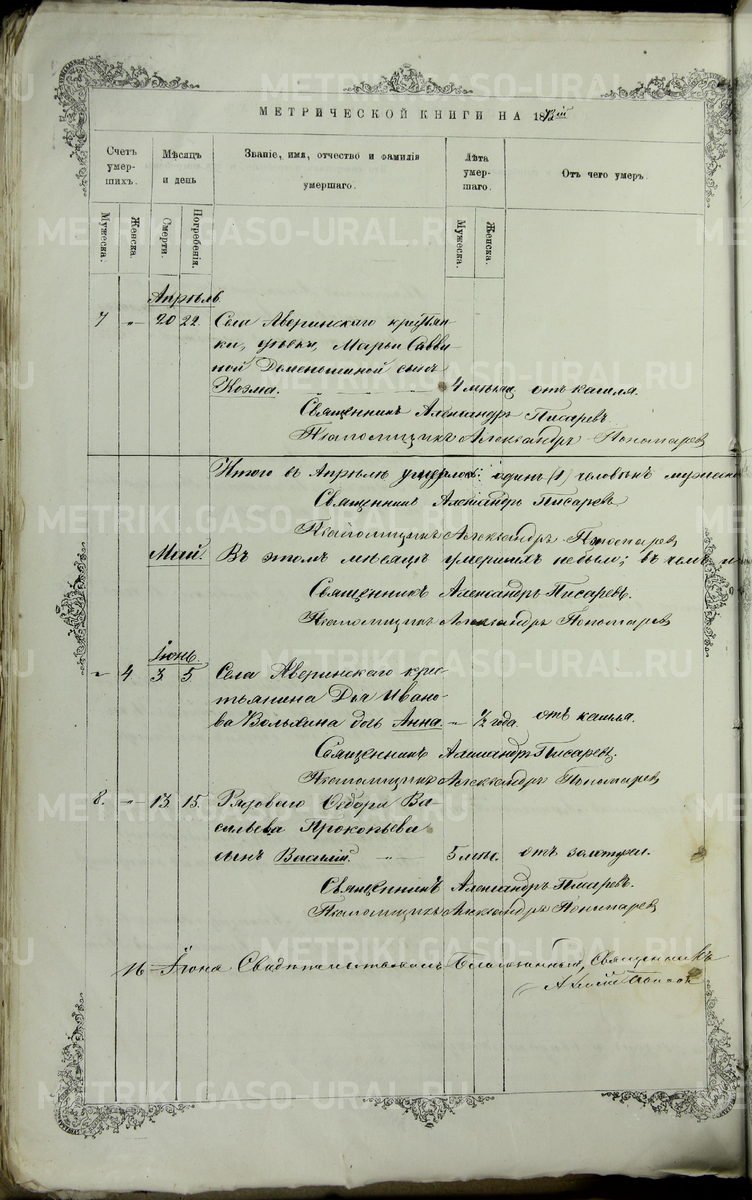 МЕТРИЧЕСКОЙ КНИГИ НА 18
Счетъ умер- шихъ.
Мѣсяцъ и день
Званіе, имя, отчество и фамилія умершаго.
Лѣта умер- шаго.
Отъ чего умеръ.
Мужеска. Женска. Смерти. Погребенія. Мужеска. Женска.
Апрѣль
7 „ 20 22. Села Аверинскаго
Марьи Савви
ной сынъ
Козма. 4 мѣсяц отъ кашля.
Священникъ Александръ Писаревъ.
Псаломщикъ Александръ Пономаревъ
Итого въ Апрѣлѣ умерло: одинъ (1) человѣкъ мужеска
Священникъ Александръ Писаревъ
Псаломщикъ Александръ Пономаревъ
Май. Въ этомъ мѣсяцѣ умершихъ небыло; въ чемъ и
Священникъ Александръ Писаревъ.
Псаломщикъ Александръ Пономаревъ
Іюнь.
„ 4 3. 5. Села Аверинскаго крес
тьянина Ивано-
ва дочь Анна. „ ½ года. отъ кашля.
Священникъ Александръ Писаревъ.
Псаломщикъ Александръ Пономаревъ
8. „ 13. 15. Рядоваго Ѳедора Ва-
сильева Прокопьева
сынъ Василій. 5 мѣс. отъ золотухи.
Священникъ Александръ Писаревъ.
Псаломщикъ Александръ Пономаревъ
16 Іюня Благочинный, Священникъ
METRIKI.GASO-URAL.RU